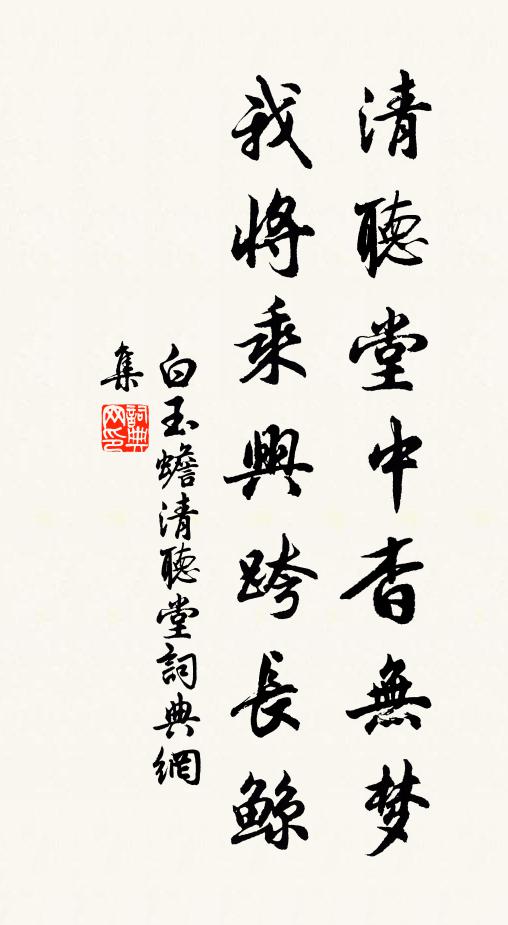 清聽堂中杳無梦
我將乘興跨長鲸
白玉蟾清聽堂詞典網
集
詞典
网印